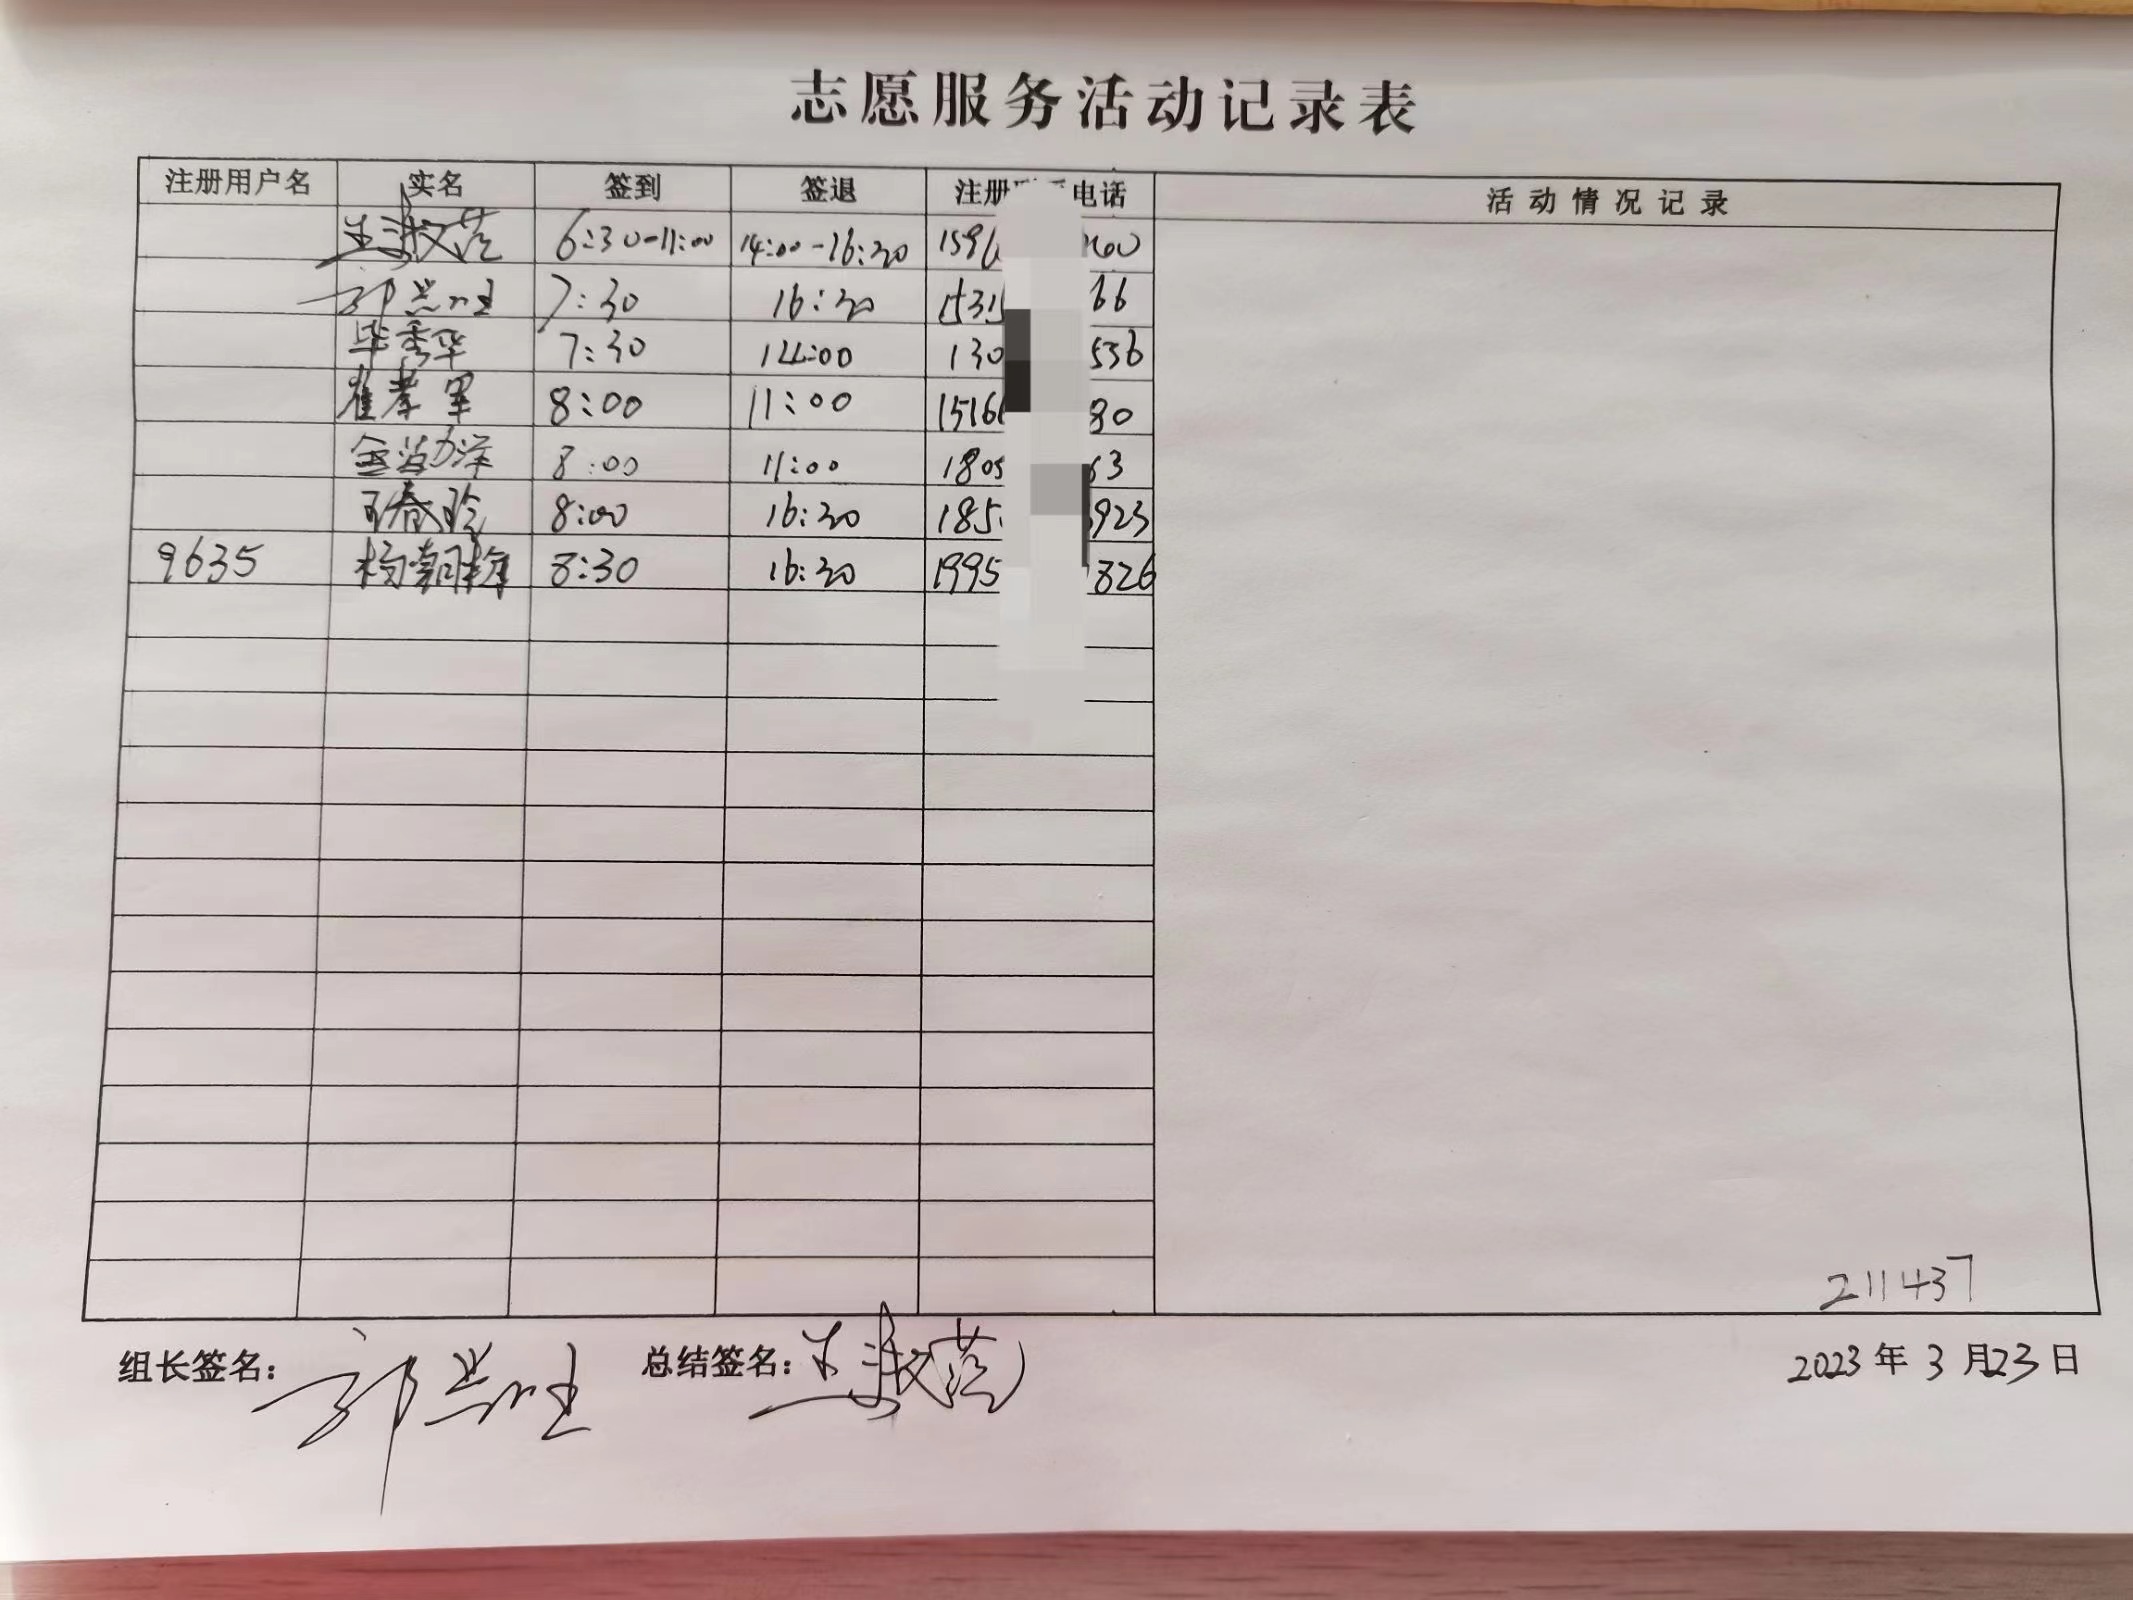 志愿服务活动记录表
注册用户名 实名 签到 签退 注册 电话 活动情况记录
王淑 6:30-11:00 14:00-16:30 159
7:30 16:30 1531 66
毕秀华 7:30 14:00 130 536
崔孝军 8:00 11:00 1516 80
8:00 11:00 1805 63
春玲 8:00 16:30 185 923
9635 杨 8:30 16:30 1995 826
211437
组长签名: 总结签名: 王淑
2023年3月23日